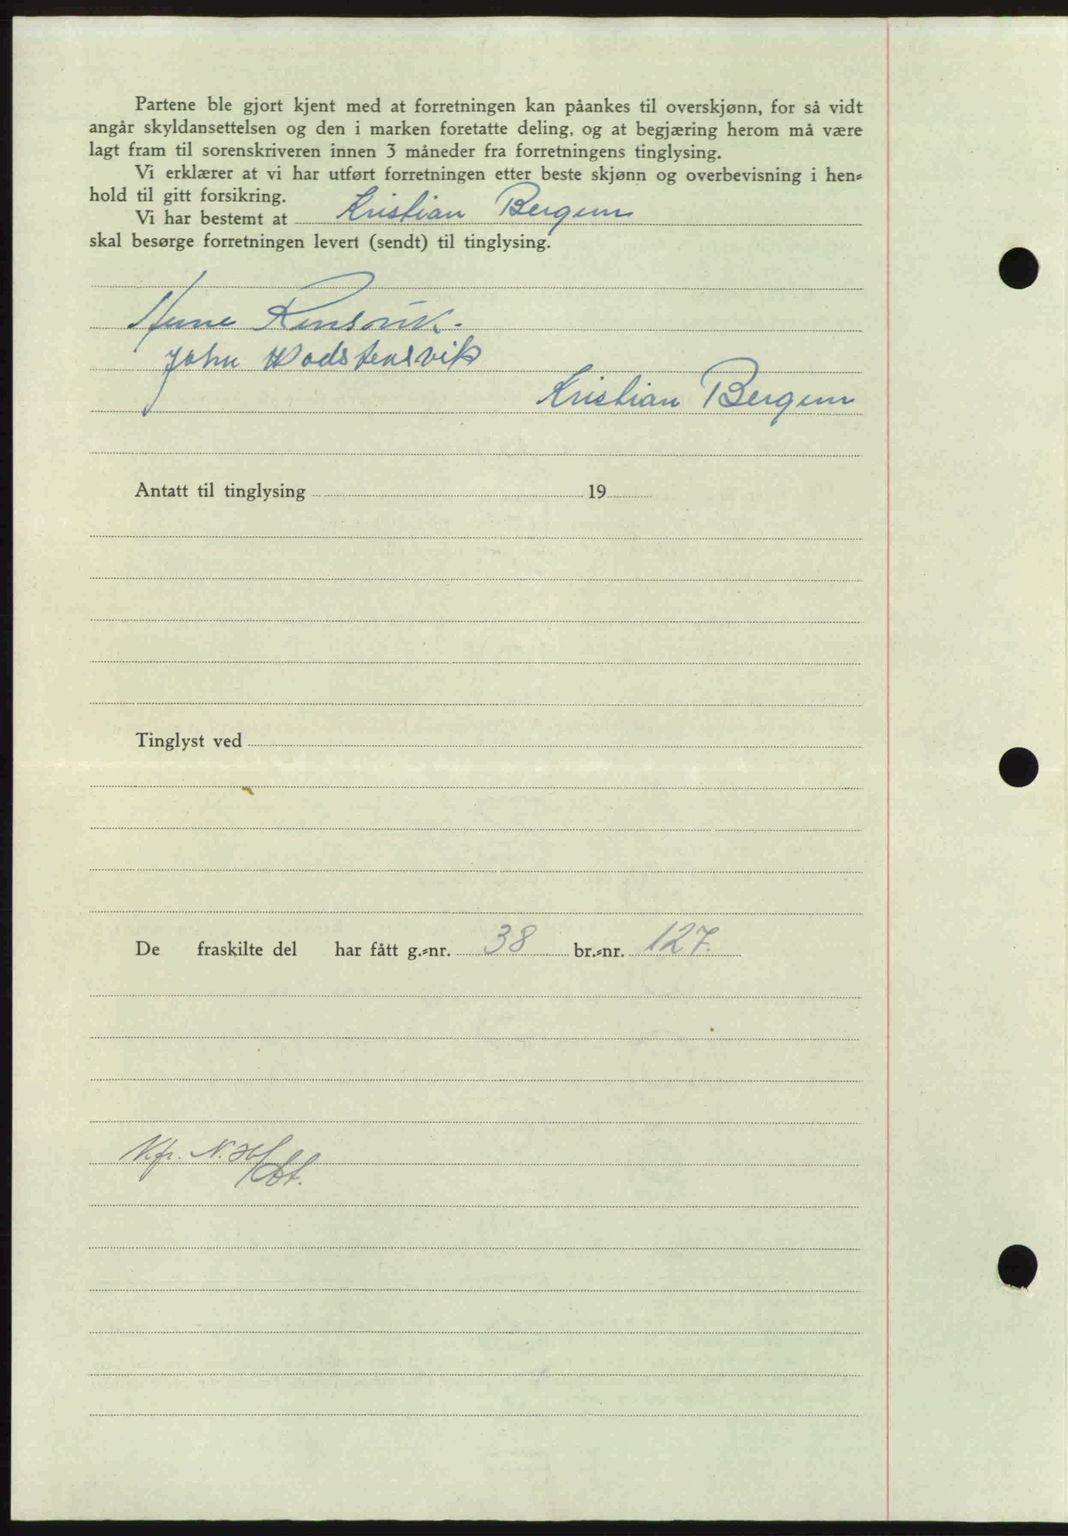 Partene ble gjort kjent med at forretningen kan påankes til overskjønn, for så vidt
angår skyldansettelsen og den i marken foretatte deling, og at begjæring herom må være
lagt fram til sorenskriveren innen 3 måneder fra forretningens tinglysing.
Vi erklærer at vi har utført forretningen etter beste skjønn og overbevisning i hen-
hold til gitt forsikring.
Vi har bestemt at Kristian Bergum
skal besørge forretningen levert (sendt) til tinglysing.
John Wadstensvik
Kristian Bergum
Antatt til tinglysing 19
Tinglyst ved
De fraskilte del har fått g.-nr. 38 br.-nr. 127.